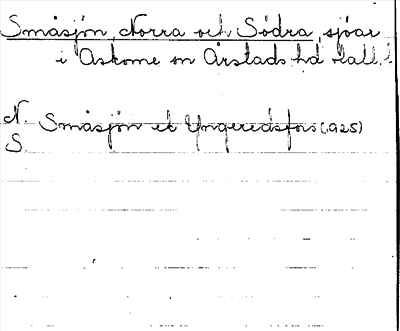 Småsjön Norra och Södra, sjöar
i Askome sn Årstads hd Hall.
N. Småsjön ek Yngeredsfors (1925)
S.